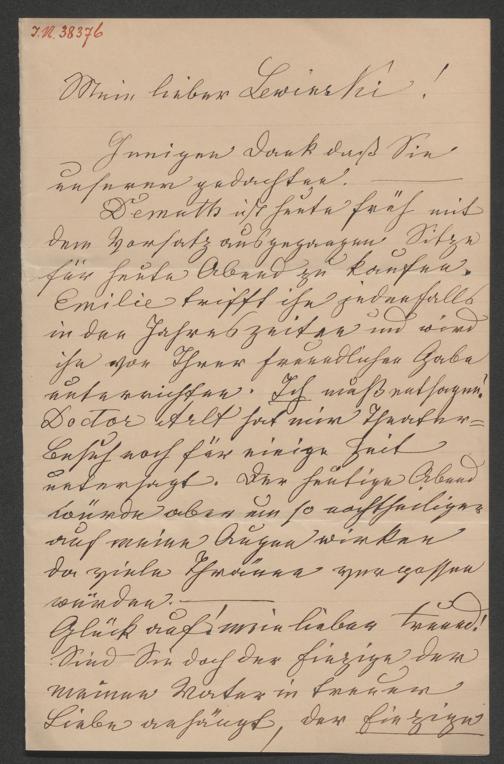 I.N. 38376
Mein lieber Lewinski!
Innigen Dank daß Sie
unserer gedachten.
Demuth ist heute früh mit
dem Vorsatz ausgegangen Sitze
für heute Abend zu kaufen.
Emilie trifft ihn jedenfalls
in den Jahreszeiten und wird
ihn von Ihrer freundlichen Gabe
unterrichten. Ich muß entsagen!
Doctor Arlt hat mir Theater=
besuch noch für einige Zeit
untersagt. Der heutige Abend
würde aber um so nachtheiliger
auf meine Augen wirken
da viele Thränen vergossen
würden.
Glück auf! mein lieber Freund!
Sind Sie doch der Einzige der
meinem Vater in treuer
Liebe anhängt, der Einzige